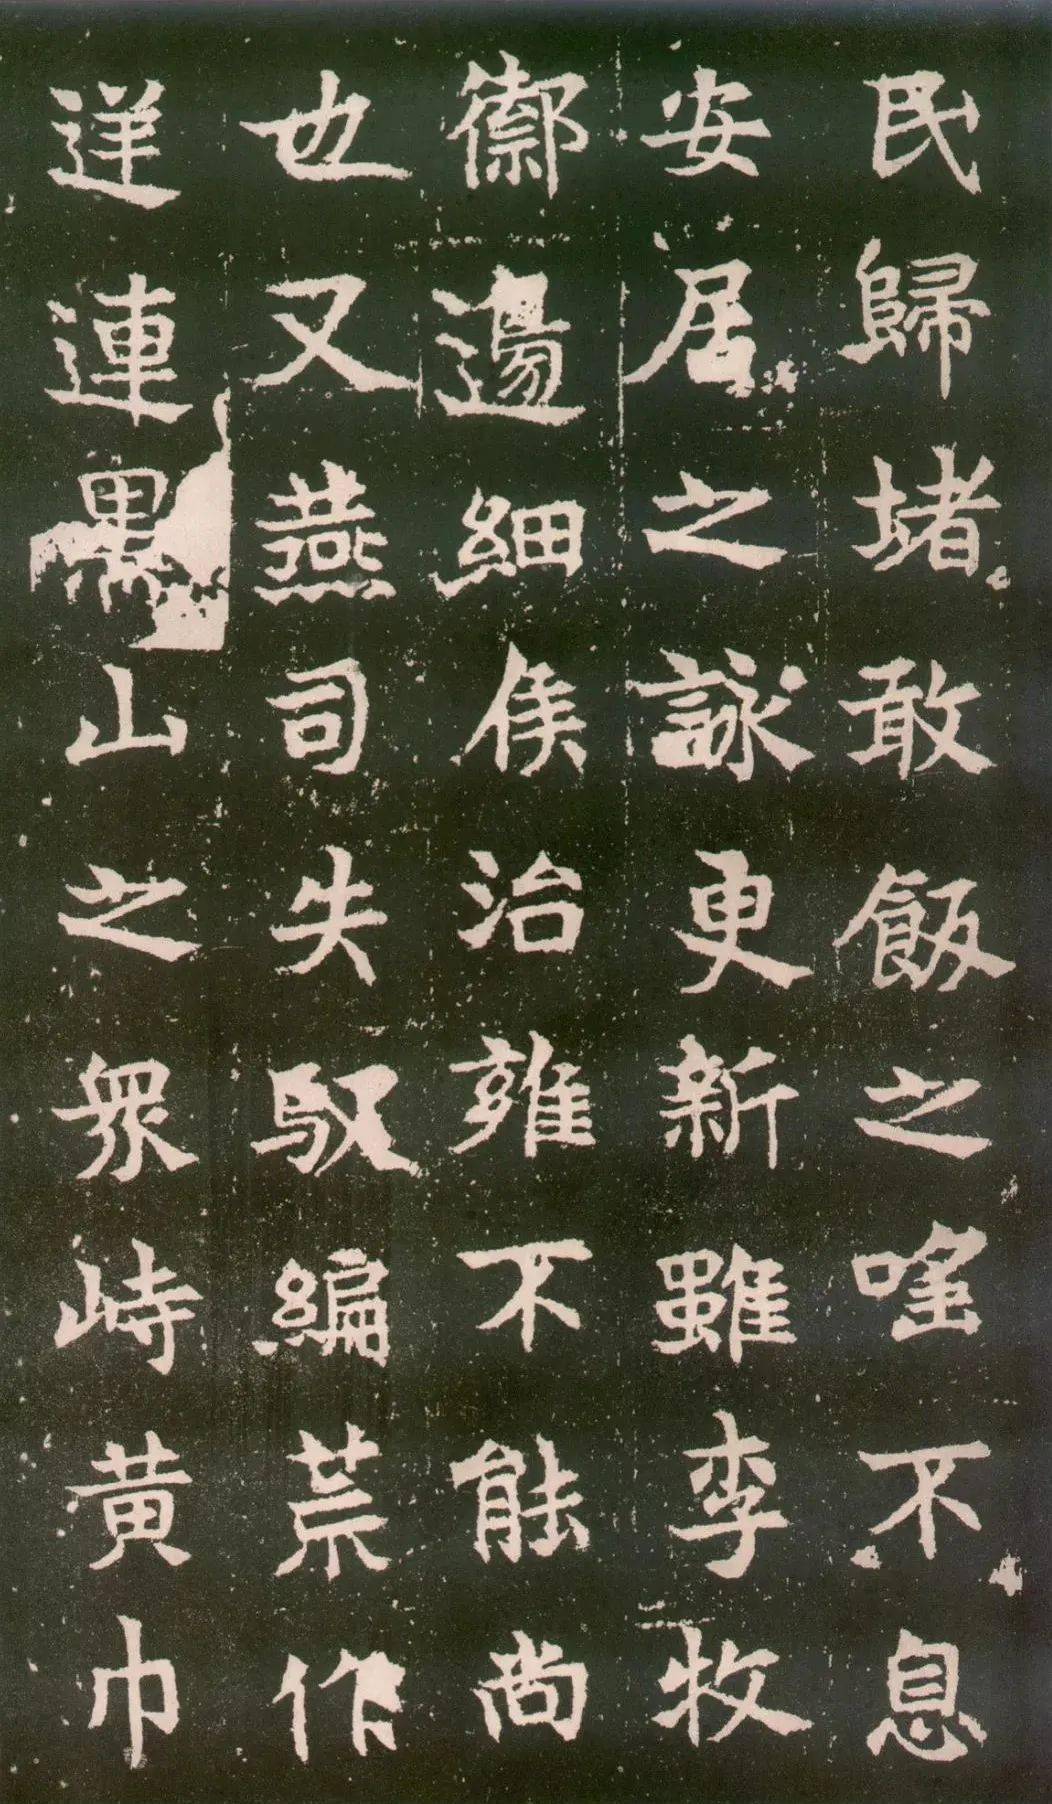 民歸堵敢飯之嗂不息
安居之詠更新雖李牧
禦邊細侯治雍不能尚
也又燕司失馭編荒作
逆連黑山之眾峙黃巾